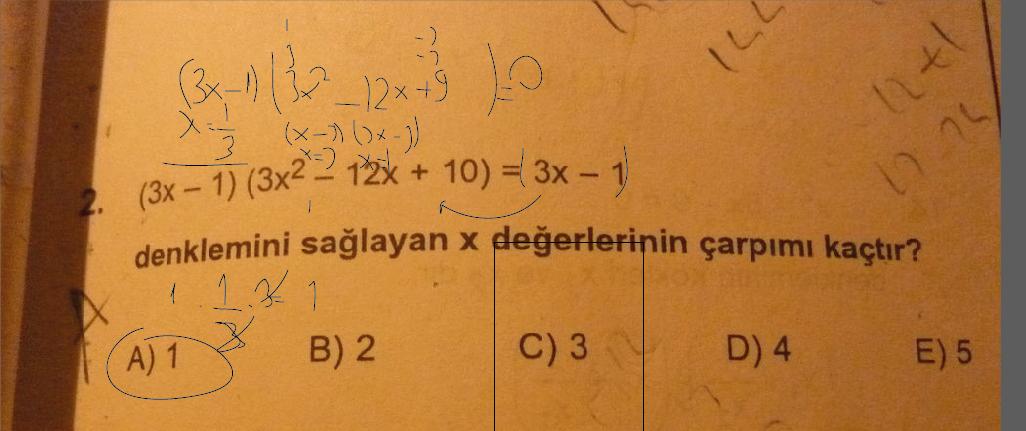 (3x-1)(3x² -12x+9)=0
x=1/3 (x-3)(3x-3)
x=3 x=1
2. (3x – 1) (3x² – 12x + 10) = (3x – 1)
denklemini sağlayan x değerlerinin çarpımı kaçtır?
1 . 1/3 . 3 = 1
A) 1 B) 2 C) 3 D) 4 E) 5